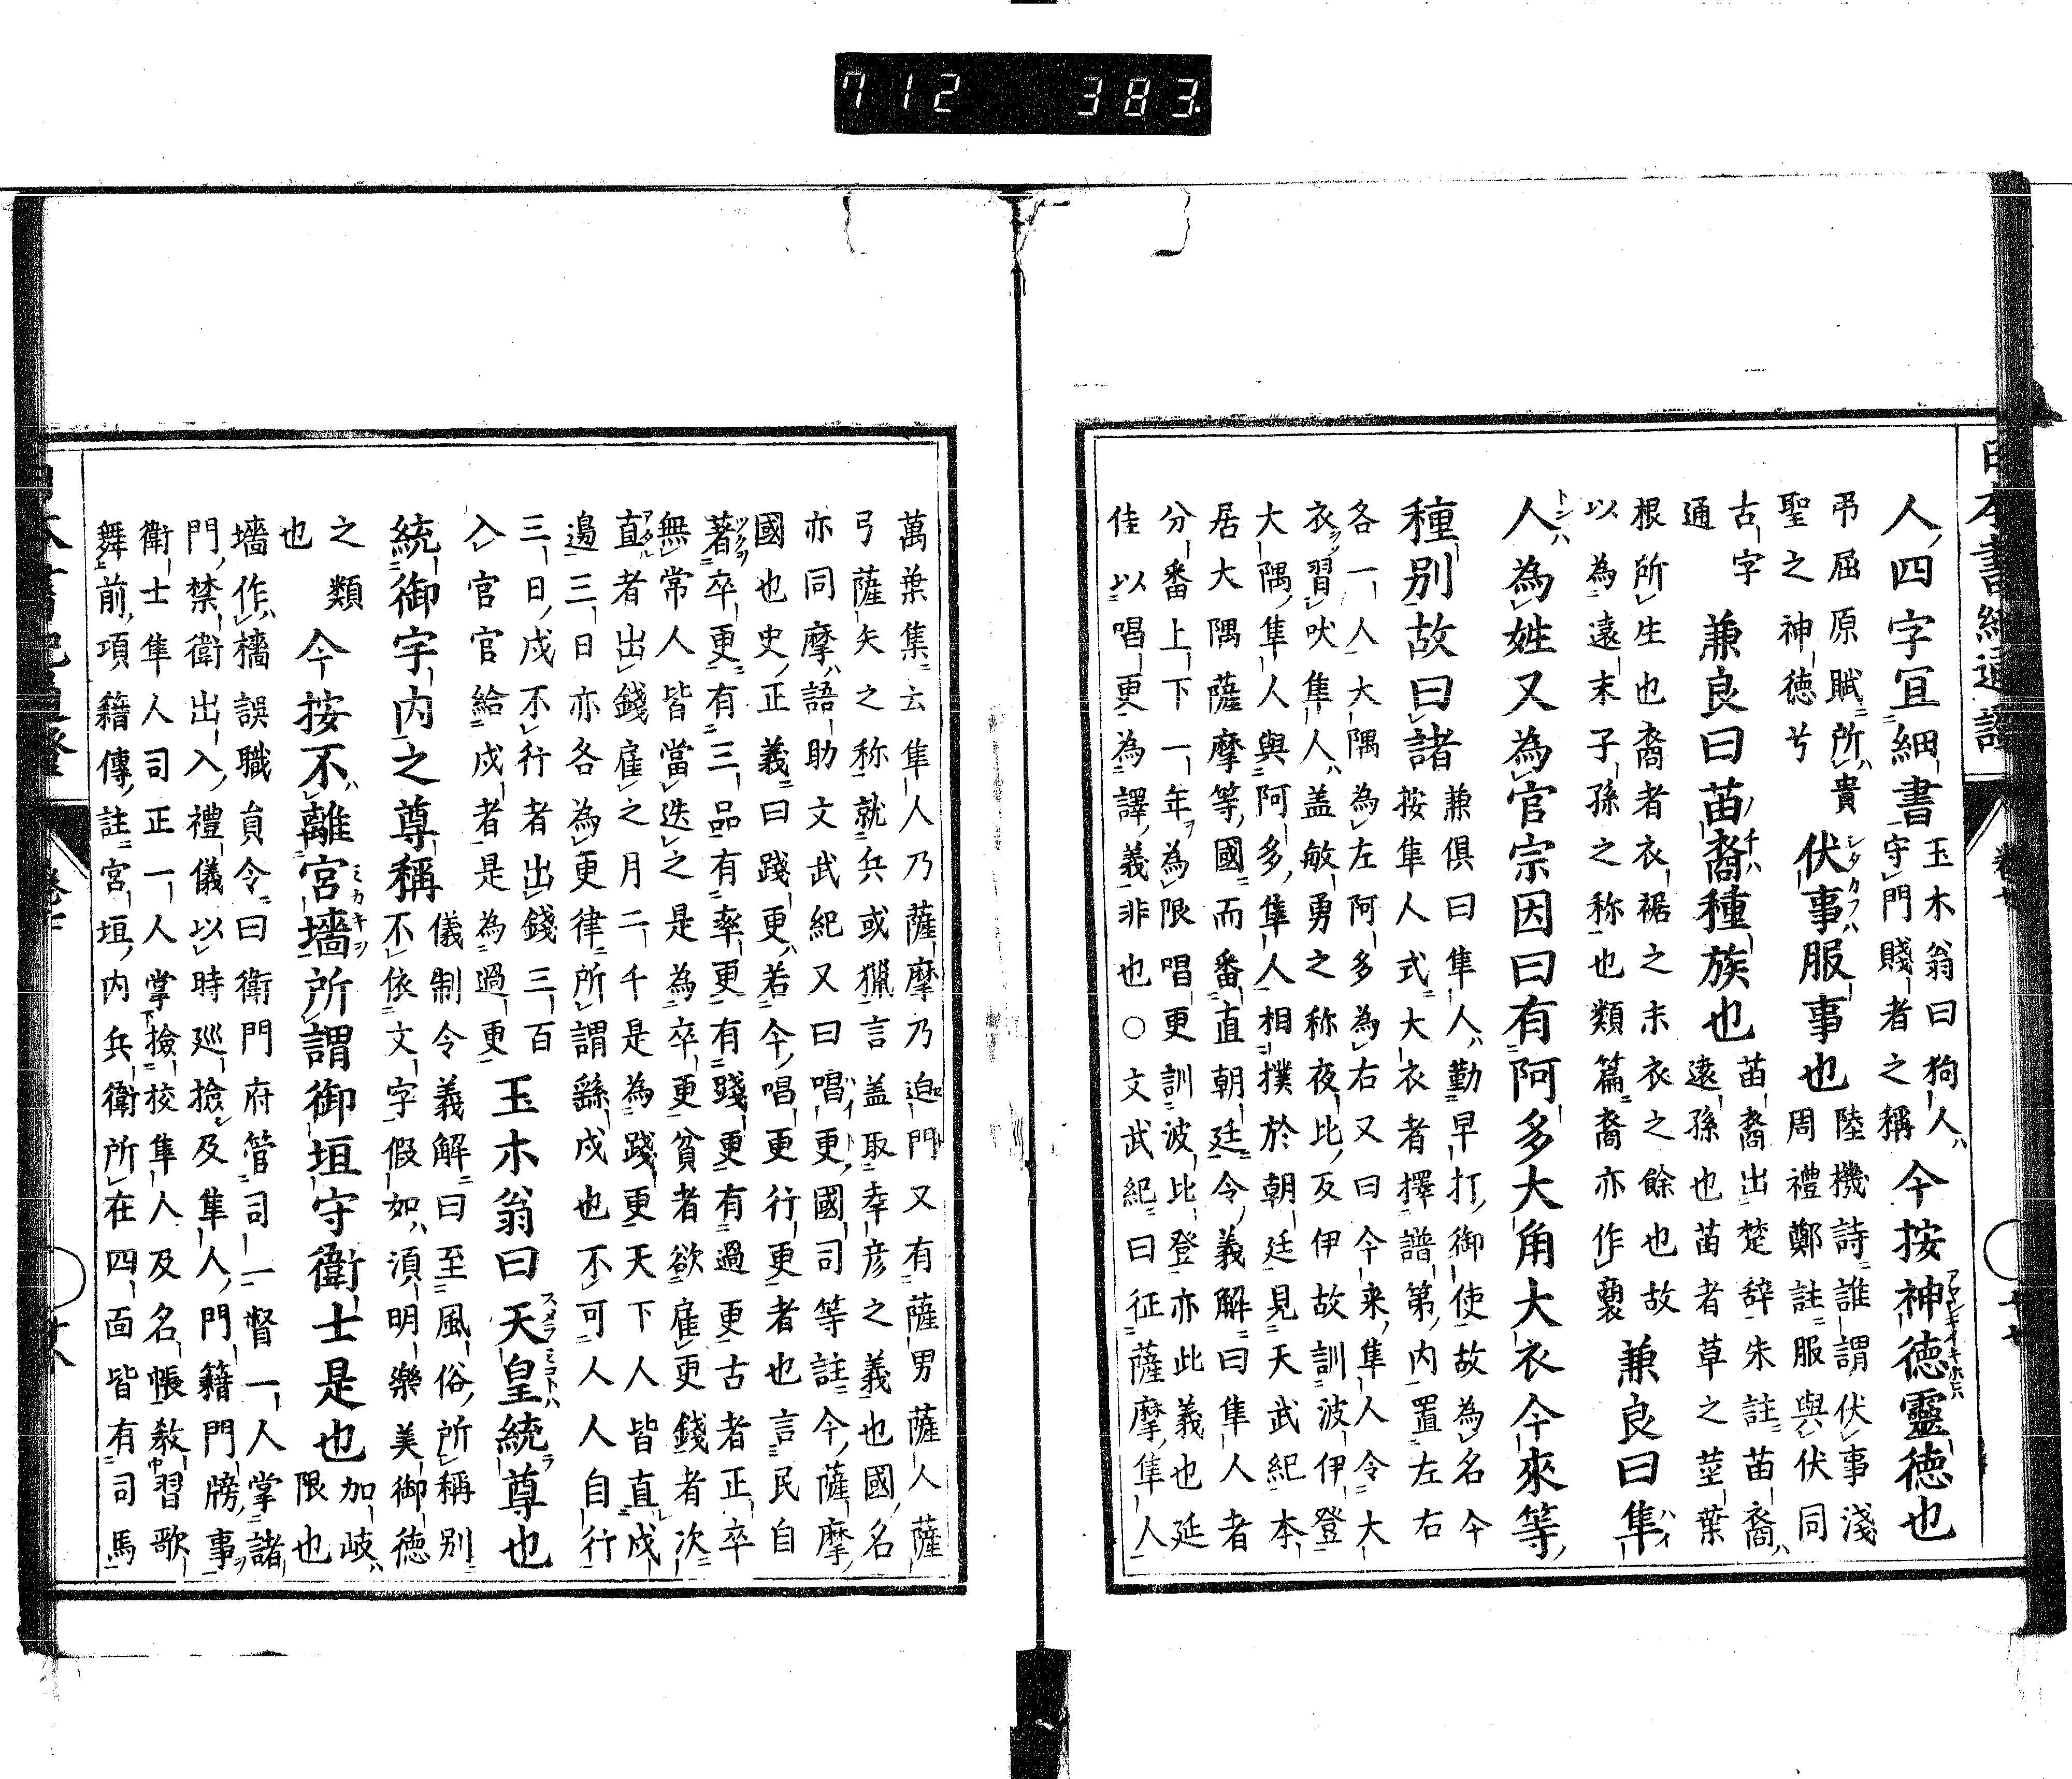 712 383
日本書紀通證
卷七
十七
人四字宜細書
玉木翁曰狗人ハ
守門賤者之稱
今按神德靈德也
弔屈原賦所貴
聖之神德兮
伏事服事也
陸機詩誰謂伏事淺
周禮鄭註服與伏同
古字
通
兼良曰苗裔種族也
苗裔出楚辭朱註苗裔ハ
遠孫也苗者草之莖葉
根所生也裔者衣裾之末衣之餘也故
以為遠末子孫之称也類篇裔亦作㐮
兼良曰隼
人為姓又為官宗因曰有阿多大角大衣今來等
種別故曰諸
兼俱曰隼人ハ勤早打御使故為名今
按隼人式大衣者擇譜第内置左右
各一人大隅為左阿多為右又曰今來隼人令大
衣習吠隼人ハ盖敏勇之称夜比反伊故訓波伊登
大隅隼人與阿多隼人相撲於朝廷見天武紀本
居大隅薩摩等國而番直朝廷令義解曰隼人者
分番上下一年為限唱更訓波比登亦此義也延
佳以唱更為譯義非也○文武紀曰征薩摩隼人
萬葉集云隼人乃薩摩乃迫門又有薩男薩人薩
弓薩矢之称就兵或猟言盖取幸彦之義也國名
亦同摩ハ語助文武紀又曰唱更國司等註今薩摩
國也史正義曰踐更ハ若今唱更行更者也言民自
著卒更有三品有率更有踐更有過更古者正卒
無常人皆當迭之是為卒更貧者欲雇更錢者次
直者出錢雇之月二千是為踐更天下人皆直戍
邉三日亦各為更律所謂繇戍也不可人人自行
三日戍不行者出錢三百
入官官給戍者是為過更
玉木翁曰天皇統尊也
統御宇内之尊稱
儀制令義解曰至風俗所稱別
不依文字假如ハ須明樂美御徳
之類
也
加岐ハ
限也
今按不離宮墻所謂御垣守衛士是也
墻作ハ檣誤職員令曰衛門府管司一督一人掌諸
門禁衛出入禮儀以時巡撿及隼人門籍門牓事
衛士隼人司正一人掌撿校隼人及名帳教習歌
舞前項籍傳註宮垣内兵衛所在四面皆有司馬
卷七
十八